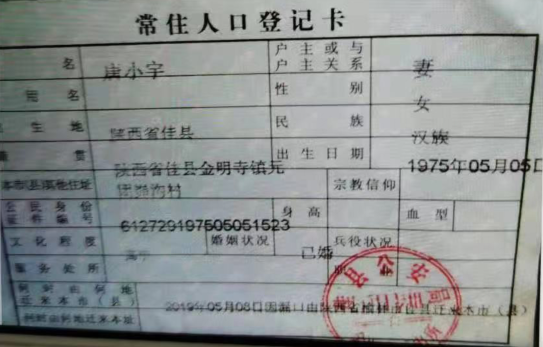 常住人口登记卡
名 唐小宇 户主或与户主关系 妻
名 性别 女
生地 陕西省佳县 民族 汉族
贯 陕西省佳县金明寺镇元 出生日期 1975年05月05日
本市(县)其他住址 宗教信仰
公民身份证件编号 612729197505051523 身高 血型
文化程度 婚姻状况 已婚 兵役状况
服务处所
何时由何地迁来本市(县) 2019年05月08日因漏口由陕西省榆林市佳县迁来本市(县)
何时由何地迁来本址